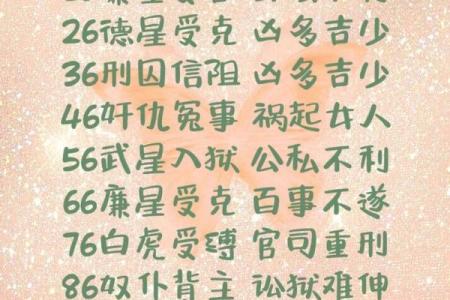 26德星受克 凶多吉少
36刑囚信阻 凶多吉少
46奸仇冤事 祸起女人
56武星入狱 公私不利
66廉星受克 百事不遂
76白虎受缚 官司重刑
86奴仆背主 讼狱难伸